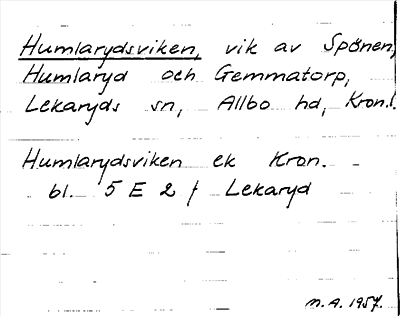 Humlarydsviken, vik av Spånen,
Humlaryd och Gemmatorp,
Lekaryds sn, Allbo hd, Kron.l.
Humlarydsviken ek Kron.
bl. 5 E 2 f Lekaryd
M.A. 1957.